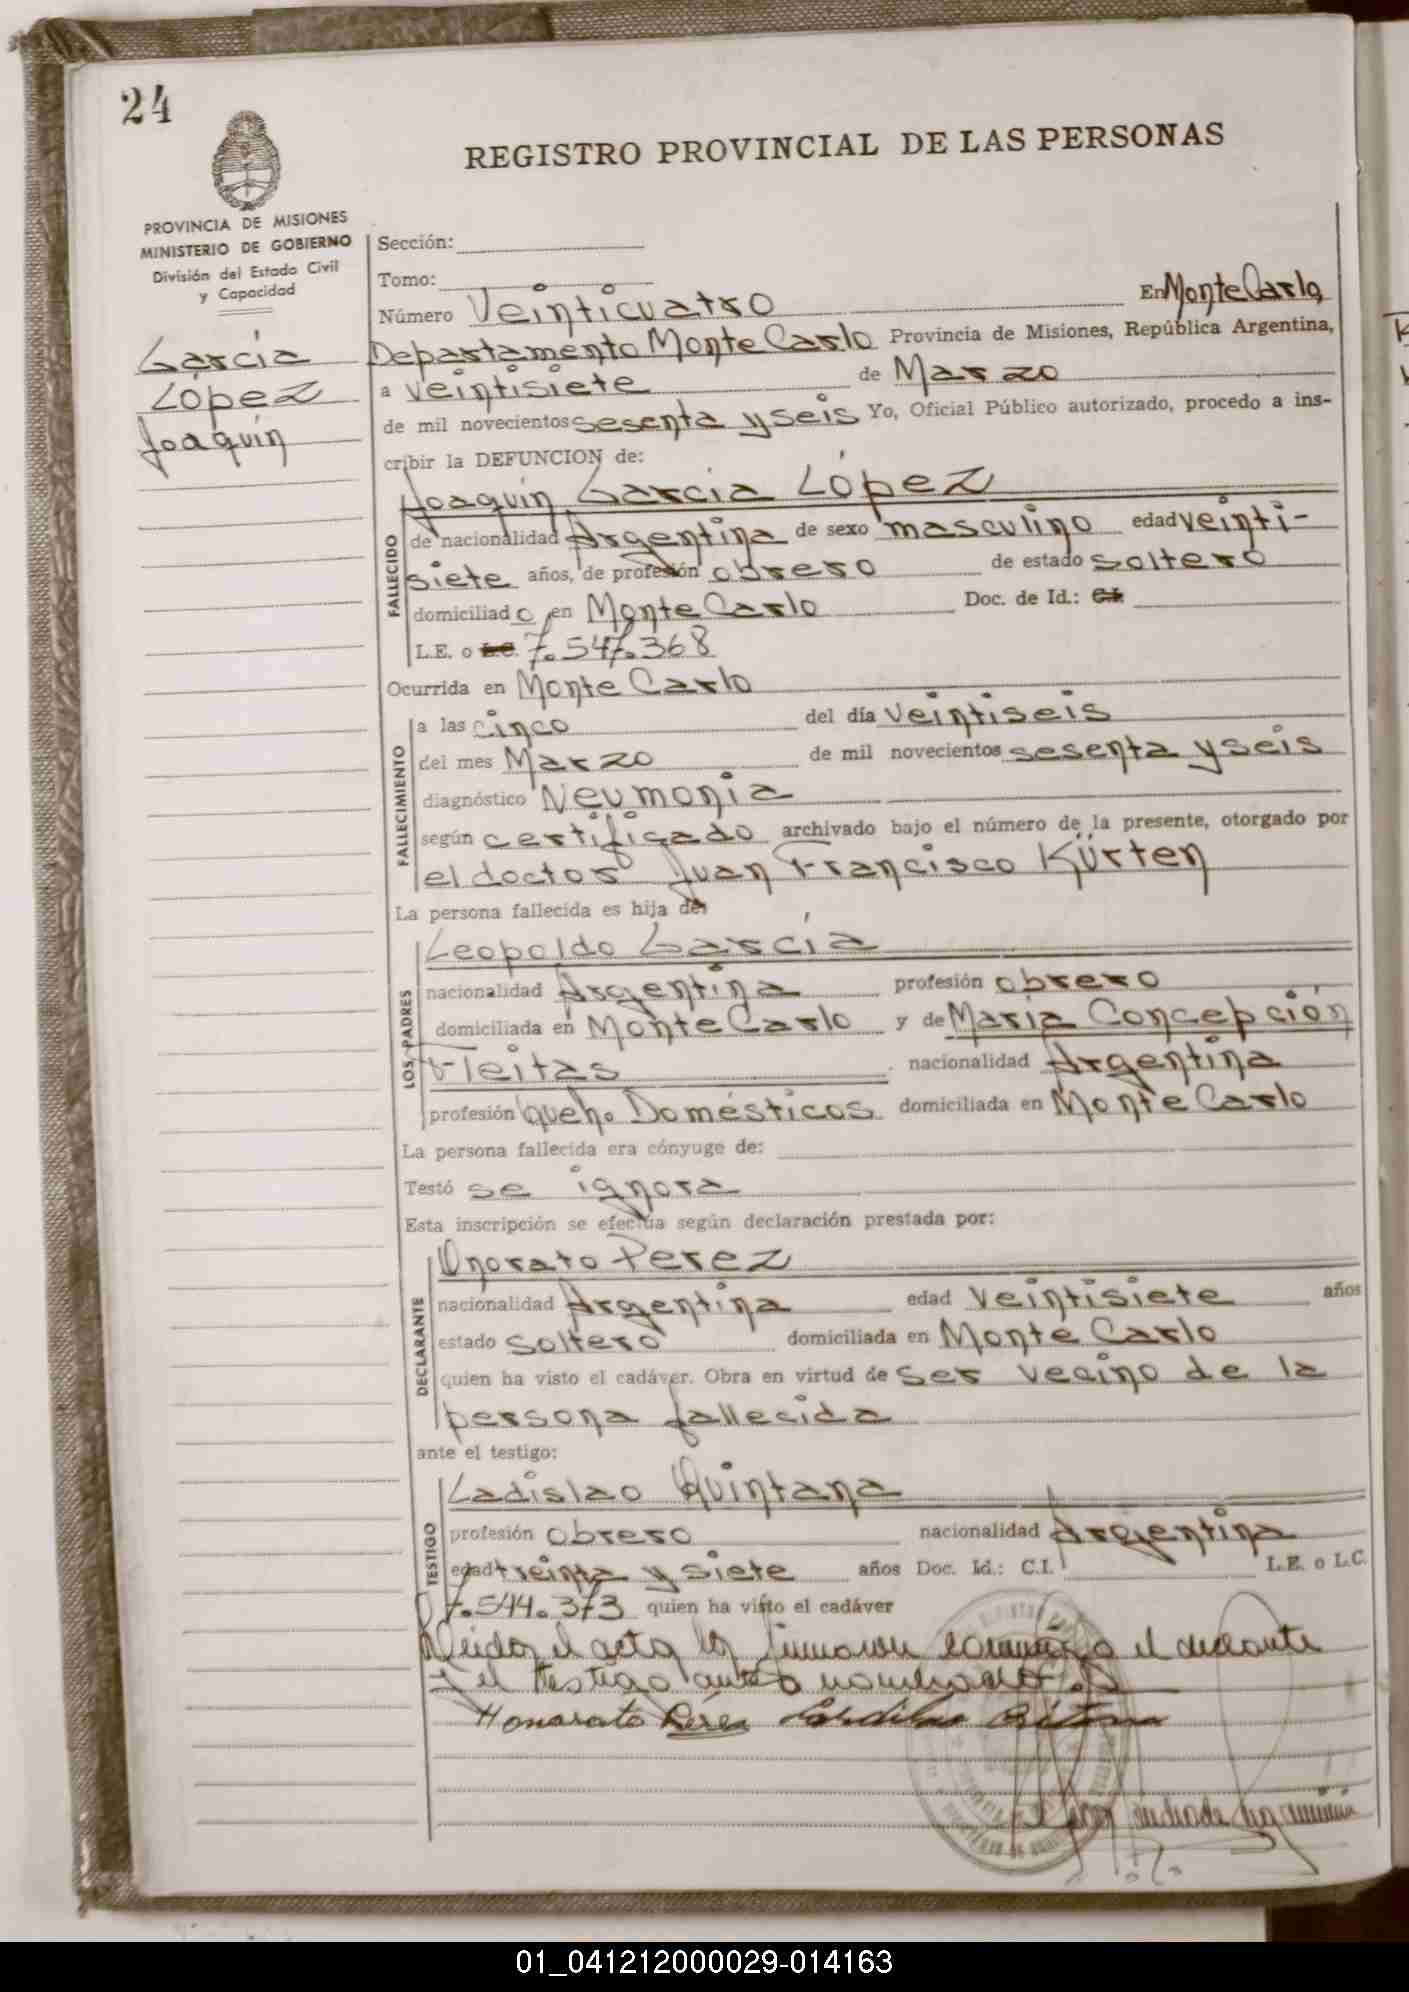 24
REGISTRO PROVINCIAL DE LAS PERSONAS
PROVINCIA DE MISIONES
MINISTERIO DE GOBIERNO
División del Estado Civil
y Capacidad
García
López
Joaquín
Sección:
Tomo:
Número Veinticuatro En Monte Carlo
Departamento Monte Carlo Provincia de Misiones, República Argentina,
a veintisiete de Marzo
de mil novecientos sesenta y seis Yo, Oficial Público autorizado, procedo a ins-
cribir la DEFUNCION de:
Joaquín Garcia López
FALLECIDO
de nacionalidad Argentina de sexo masculino edad veinti-
siete años, de profesión obrero de estado soltero
domiciliado en Monte Carlo Doc. de Id.:
L.E. o L.C. 7.547.368
Ocurrida en Monte Carlo
FALLECIMIENTO
a las cinco del día veintiseis
del mes Marzo de mil novecientos sesenta y seis
diagnóstico Neumonia
según certificado archivado bajo el número de la presente, otorgado por
el doctor Juan Francisco Kürten
La persona fallecida es hija de:
LOS PADRES
Leopoldo García
nacionalidad Argentina profesión obrero
domiciliada en Monte Carlo y de María Concepción
Fleitas nacionalidad Argentina
profesión queh. Domésticos domiciliada en Monte Carlo
La persona fallecida era cónyuge de:
Testó se ignora
Esta inscripción se efectúa según declaración prestada por:
DECLARANTE
Onorato Perez
nacionalidad Argentina edad veintisiete años
estado soltero domiciliada en Monte Carlo
quien ha visto el cadáver. Obra en virtud de ser vecino de la
persona fallecida
ante el testigo:
TESTIGO
Ladislao Quintana
profesión obrero nacionalidad Argentina
edad treinta y siete años Doc. Id.: C.I. L.E. o L.C.
7.544.373 quien ha visto el cadáver
Leida el acta la firmaron conmigo el declarante
y el testigo antes nombrados
Honorato Perez
01_041212000029-014163